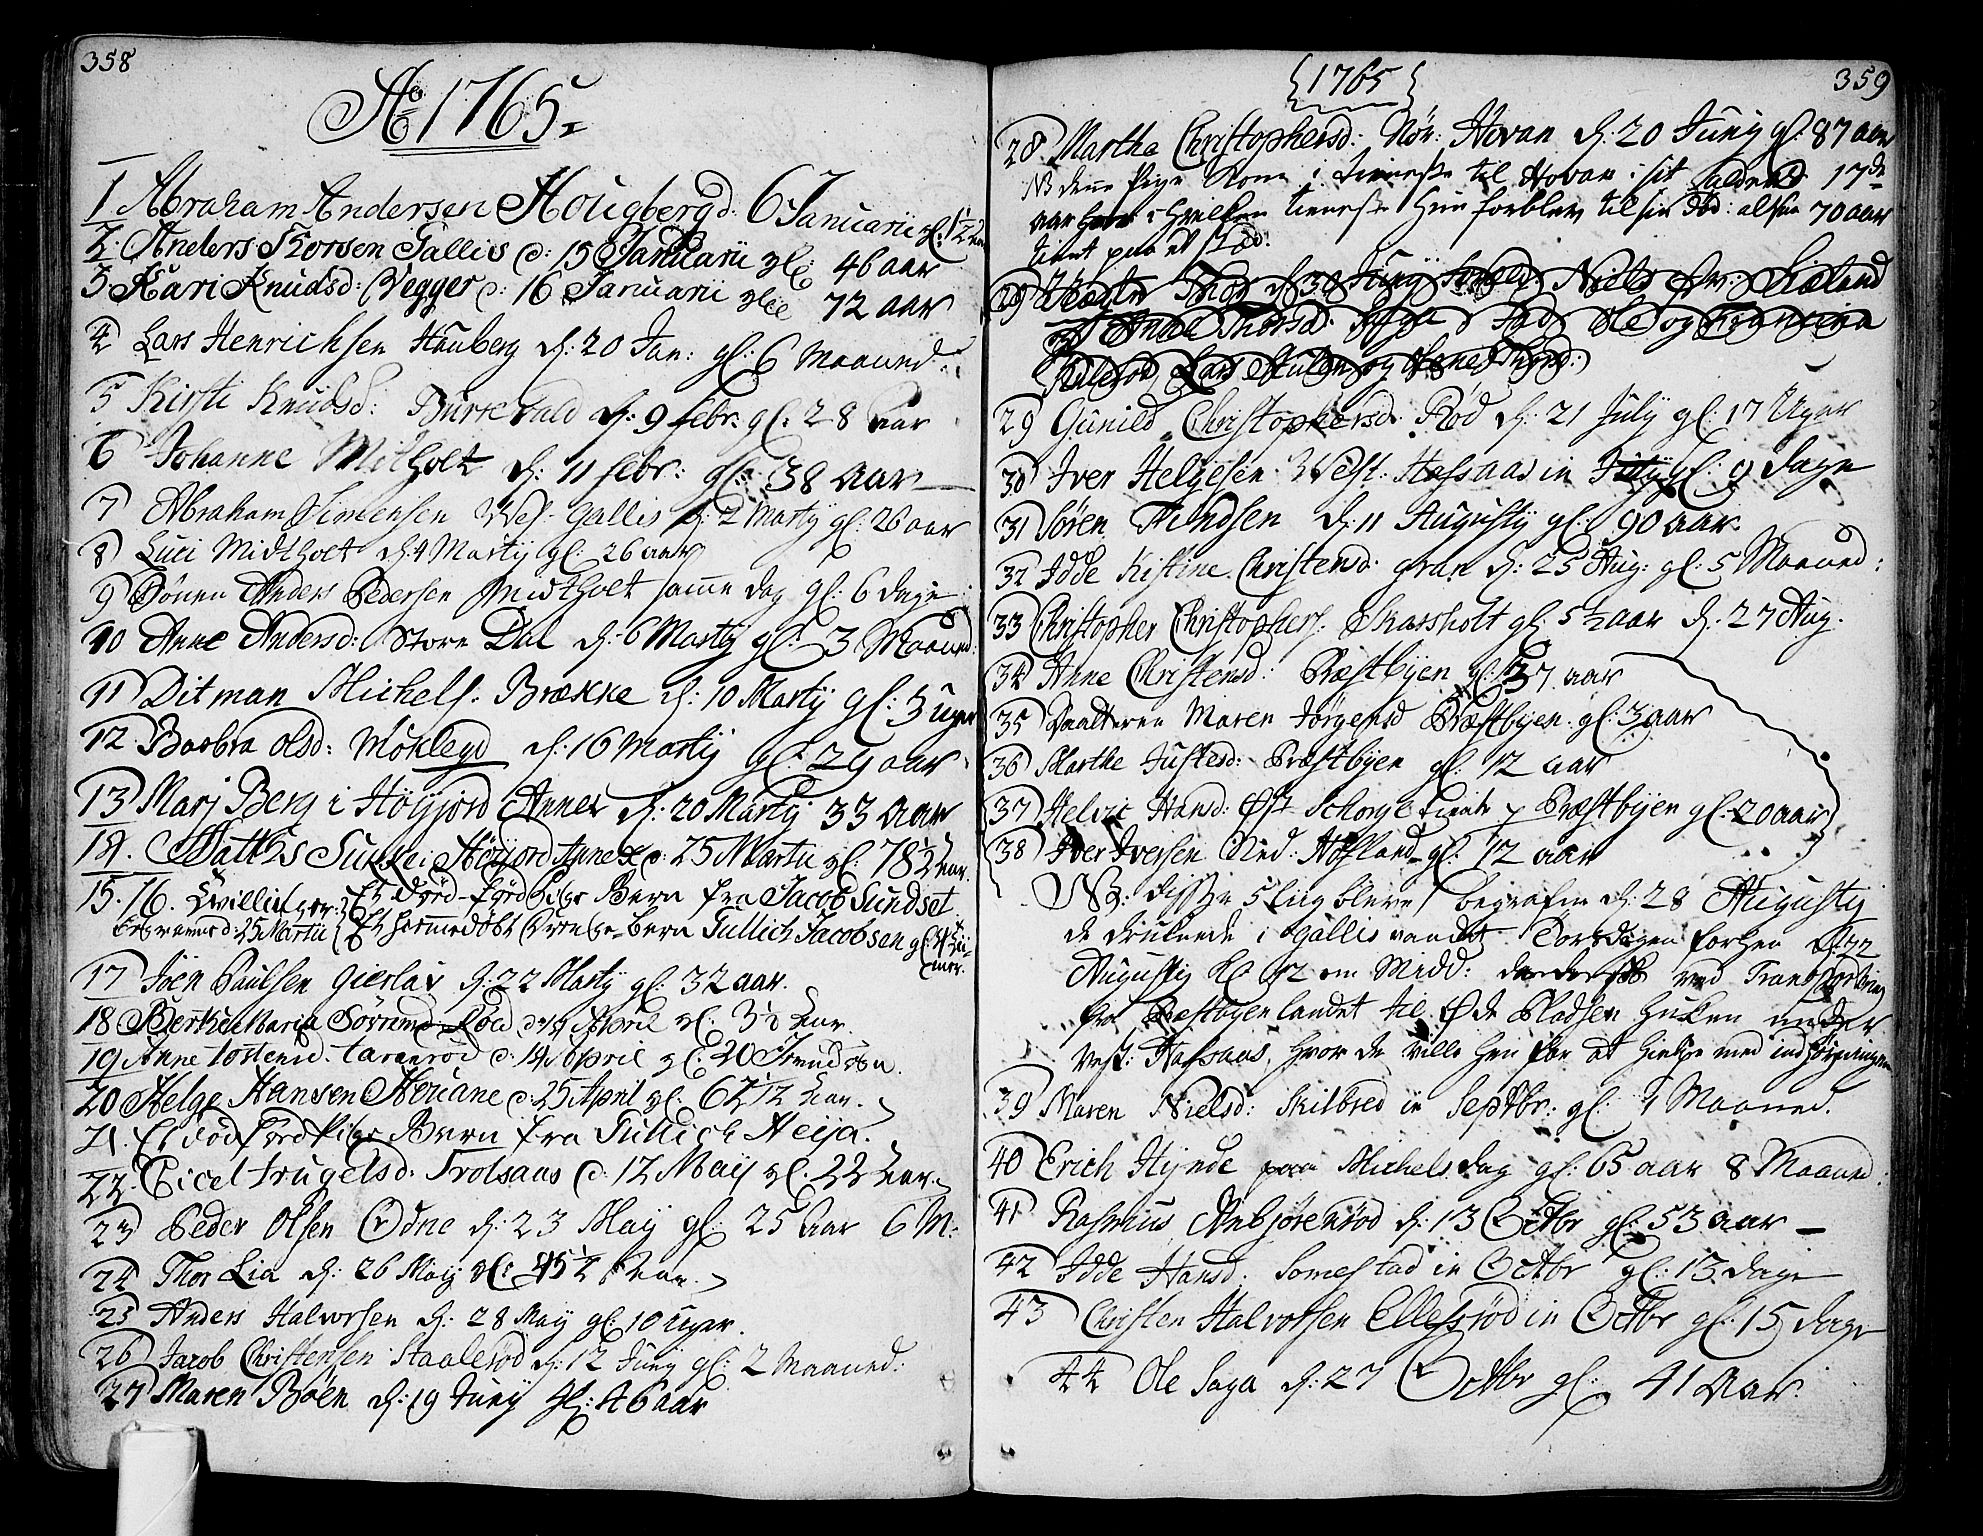 358
Ao 1765
1 Abraham Andersen Hougberg d: 6 Januarii gl: 1½ aar
2. Anders Thorsen Gallis d: 15 Januarii gl: 46 aar
3 Kari Knudsd: Vegger d: 16 Januarii gl: 72 aar
4 Lars Henrichsen Hauberg d: 20 Jan: gl: 6 Maaned:
5 Kirsti Knudsd: d: 9 febr: gl: 28 aar
6 Johanne Mitholt d: 11 febr: gl: 38 aar
7 Abraham Simensen Vest-Gallis d: 2 Martij gl: 26 aar
8 Luci Midtholt d: 4 Martij gl: 26 aar
9 Anders Pedersen Midtholt samme dag gl: 6 dage
10 Anne Andersd: Store Dal d: 6 Martij gl: 3 Maaned:
11 Ditman Michels: Brække d: 10 Martij gl: 3 uger
12. Baabra Olsd: Møklegd d: 16 Martij gl: 29 aar
13 Marj Berg i Høijord Annex d: 20 Martij 33 aar
14. Matthis Sukke i Høijord Annex d: 25 Martii gl: 78½ aar.
15. 16. Tvillinger: Et død-fød Pige Barn fra Jacob Sundset
begravned: 25 Martii Et hiemmedøbt Drenge-barn Tullich Jacobsen gl:
17 Joen Paulsen Gierløv d: 22 Martij gl: 32 aar.
18 Maria Sørensd Rød d: April gl: 3½ aar.
19 Anne Tostensd. Taraldrød d: 14 April gl: 20
20 Helge Hansen Hovane d: 25 April gl: 62½ aar.
21. Et dødfødt Pige Barn fra Tullich Heija.
22. Sicel Trugelsd: Trolsaas d: 12 Maij gl: 22 aar.
23 Peder Olsen Ødne d: 23 Maij gl: 25 Aar 6 M:
24 Thor Lia d: 26 Maij gl: 45½ aar.
25 Anders Halvorsen d: 28 Maij gl: 10 uger.
26 Jacob Christensen Staalerød d: 12 Junij gl: 2 Maaned:
27 Maren Bøen d: 19 Junij gl: 46 aar
359
1765
28 Martha Christophersd: Nør: Hovan d: 20 Junij gl: 87 aar
NB denne Pige kom i tieneste til Hovan i sit alders 17de
aar i hvilken tieneste hun forblev til sin død: altsaa 70 aar
tient paa et Stæd.
29 Gunild Christophersd. Rød d: 21 Julij gl: 17 Uger
30 Iver Helgesen Vest: Hafsaas in Julij gl: 9 dage
31 Søren Findsen d: 11 Augustij gl: 90 aar.
32 Idde Kistine Christensd: gran d: 25 Aug: gl: 5 Maaned:
33 Christopher Christophers: Skarsholt gl: 5½ aar d: 27 Aug.
34 Anne Christensd: Præstbyen gl: 37 aar
35 Daatteren Maren Jørgensd Præstbyen gl: 3 aar
36 Marthe Justesd: Præstbyen gl: 12 aar
37 Helvic Hansd: Øst Schorge tiente Præstbyen gl: 20 aar
38 Iver Iversen Ned: Hofland gl: 12 aar
NB: disse 5 Liig bleve begrafne d: 28 Augustij
de druknede i Gallis vandet Torsdagen forhen d: 22
Augustij Kl 12 om Midd: ved
fra landet til Øde Pladsen Huken under
Vest: Hafsaas, hvor de ville hen for at hielpe med indhøstningen
39 Maren Nielsd: Skilbred in Septbr: gl: 1 Maaned.
40 Erich Hynde paa Michelsdag gl: 65 aar 8 Maaned:
41 Rasmus Anbjørenrød d: 13 Octbr gl: 53 aar
42 Idde Hansd: Somestad in Octbr gl: 13 dage
43 Christen Halvorsen Ellefsrød in Octbr gl: 15 dage
44 Ole Saga d: 27 Octbr gl: 41 Aar.